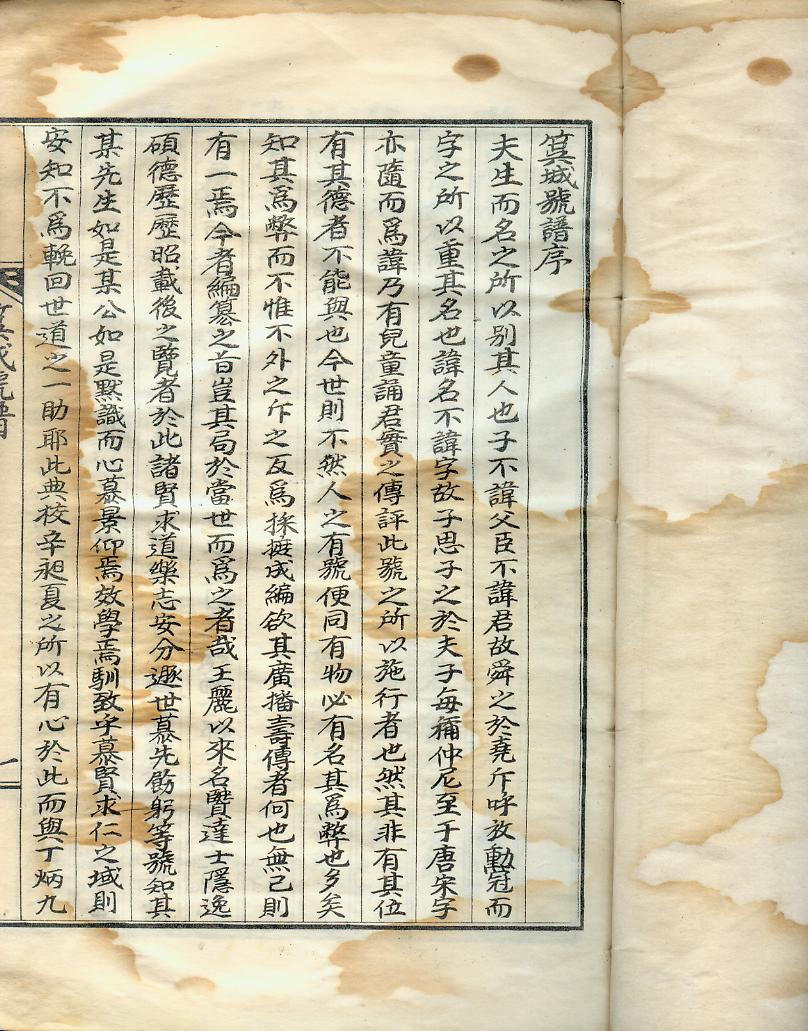 箕城號譜序
夫生而名之所以別其人也子不諱父臣不諱君故舜之於堯斥呼放勳冠而
字之所以重其名也諱名不諱字故子思子之於夫子每稱仲尼至于唐宋字
亦隨而爲諱乃有兒童誦君實之傳評此號之所以施行者也然其非有其位
有其德者不能與也今世則不然人之有號便同有物必有名其爲弊也多矣
知其爲弊而不惟不外之斥之反爲採摭成編欲其廣播壽傳者何也無已則
有一焉今者編纂之旨豈其局於當世而爲之者哉王麗以來名賢達士隱逸
碩德歷歷昭載後之覽者於此諸賢求道樂志安分遯世慕先飭躬等號知其
某先生如是某公如是默識而心慕景仰焉效學焉馴致乎慕賢求仁之域則
安知不爲輓回世道之一助耶此典校辛昶夏之所以有心於此而與丁炳九
箕城號譜
一